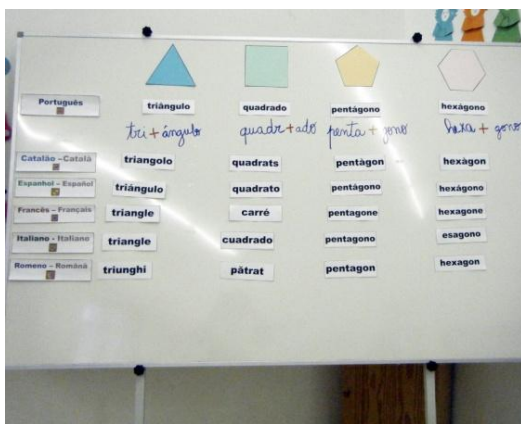 Português triângulo quadrado pentágono hexágono
tri + ângulo quadr + ado penta + gono hexa + gono
Catalão – Català triangolo quadrats pentàgon hexàgon
Espanhol – Español triángulo quadrato pentágono hexágono
Francês – Français triangle carré pentagone hexagone
Italiano - Italiano triangle cuadrado pentagono esagono
Romeno – Română triunghi pătrat pentagon hexagon